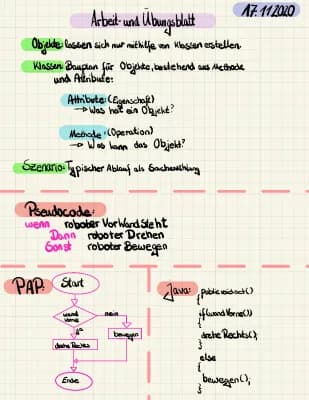 17.11.2020
Arbeit- und Übungsblatt
Objekte: lassen sich nur mithilfe von Klassen erstellen.
Klassen: Bauplan für Objekte, bestehend aus Methode
und Attribute:
Attribute: (Eigenschaft)
→ Was hat ein Objekt?
Methode: (Operation)
→ Was kann das Objekt?
Szenario: Typischer Ablauf als
Pseudocode:
wenn roboter Vor Wand steht
Dann roboter Drehen
Sonst roboter Bewegen
PAP:
Start
wand vorne
nein
ja
drehe Rechts
bewegen
Ende
Java:
public void act()
{
if(wandVorne())
{
drehe Rechts();
}
else
{
bewegen();
}